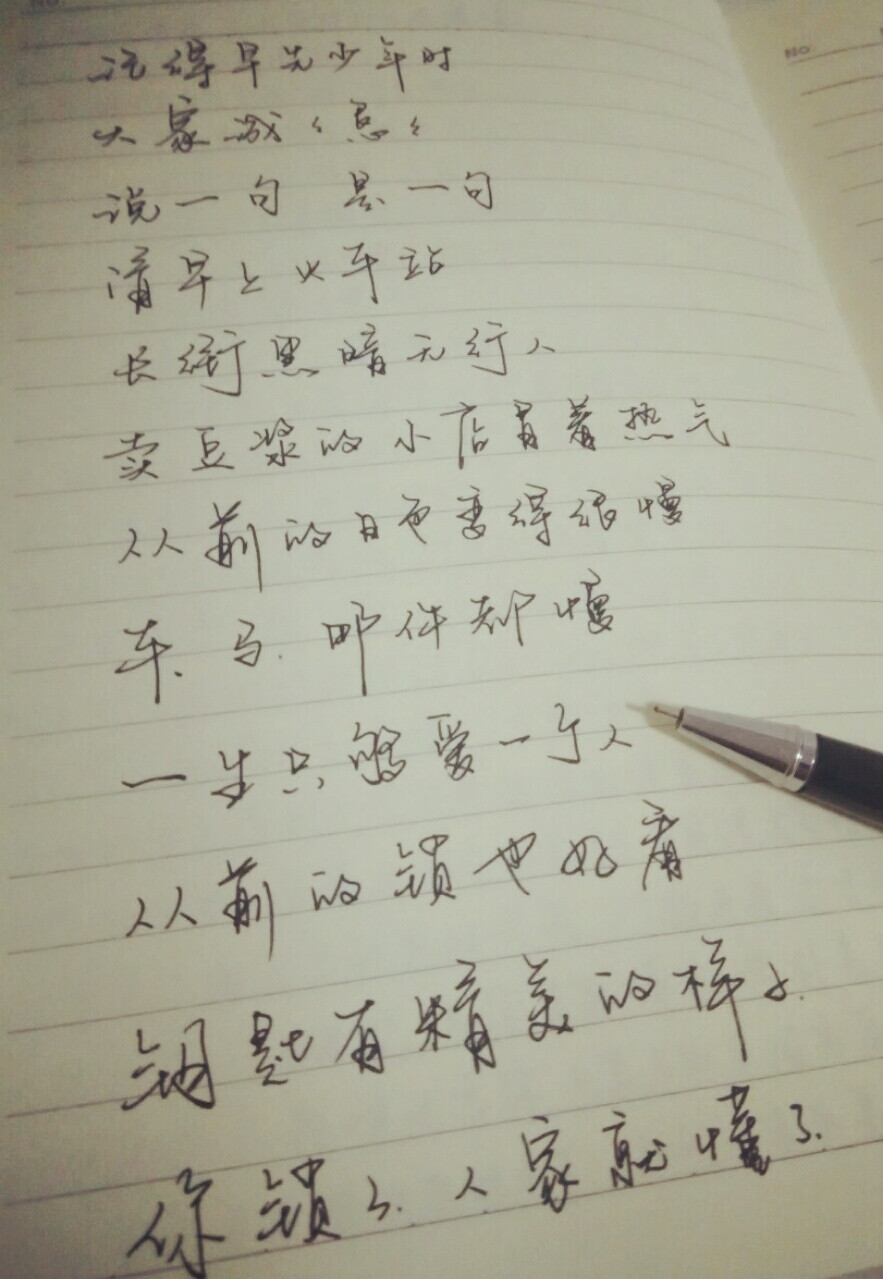 No
No
记得早先少年时
大家诚々恳々
说一句 是一句
清早上火车站
长街黑暗无行人
卖豆浆的小店冒着热气
从前的日色变得很慢
车、马、邮件都慢
一生只够爱一个人
从前的锁也好看
钥匙有精美的样子
你锁了、人家就懂了